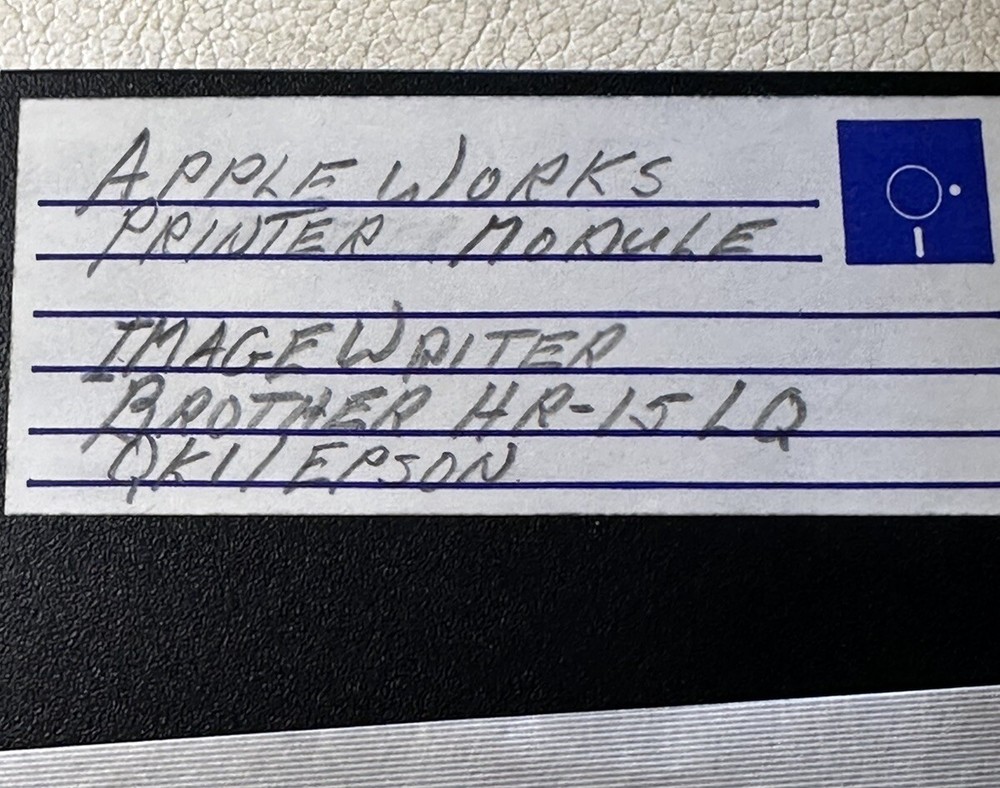 APPLEWORKS
PRINTER MODULE
IMAGEWRITER
BROTHER HR-15 LQ
EPSON